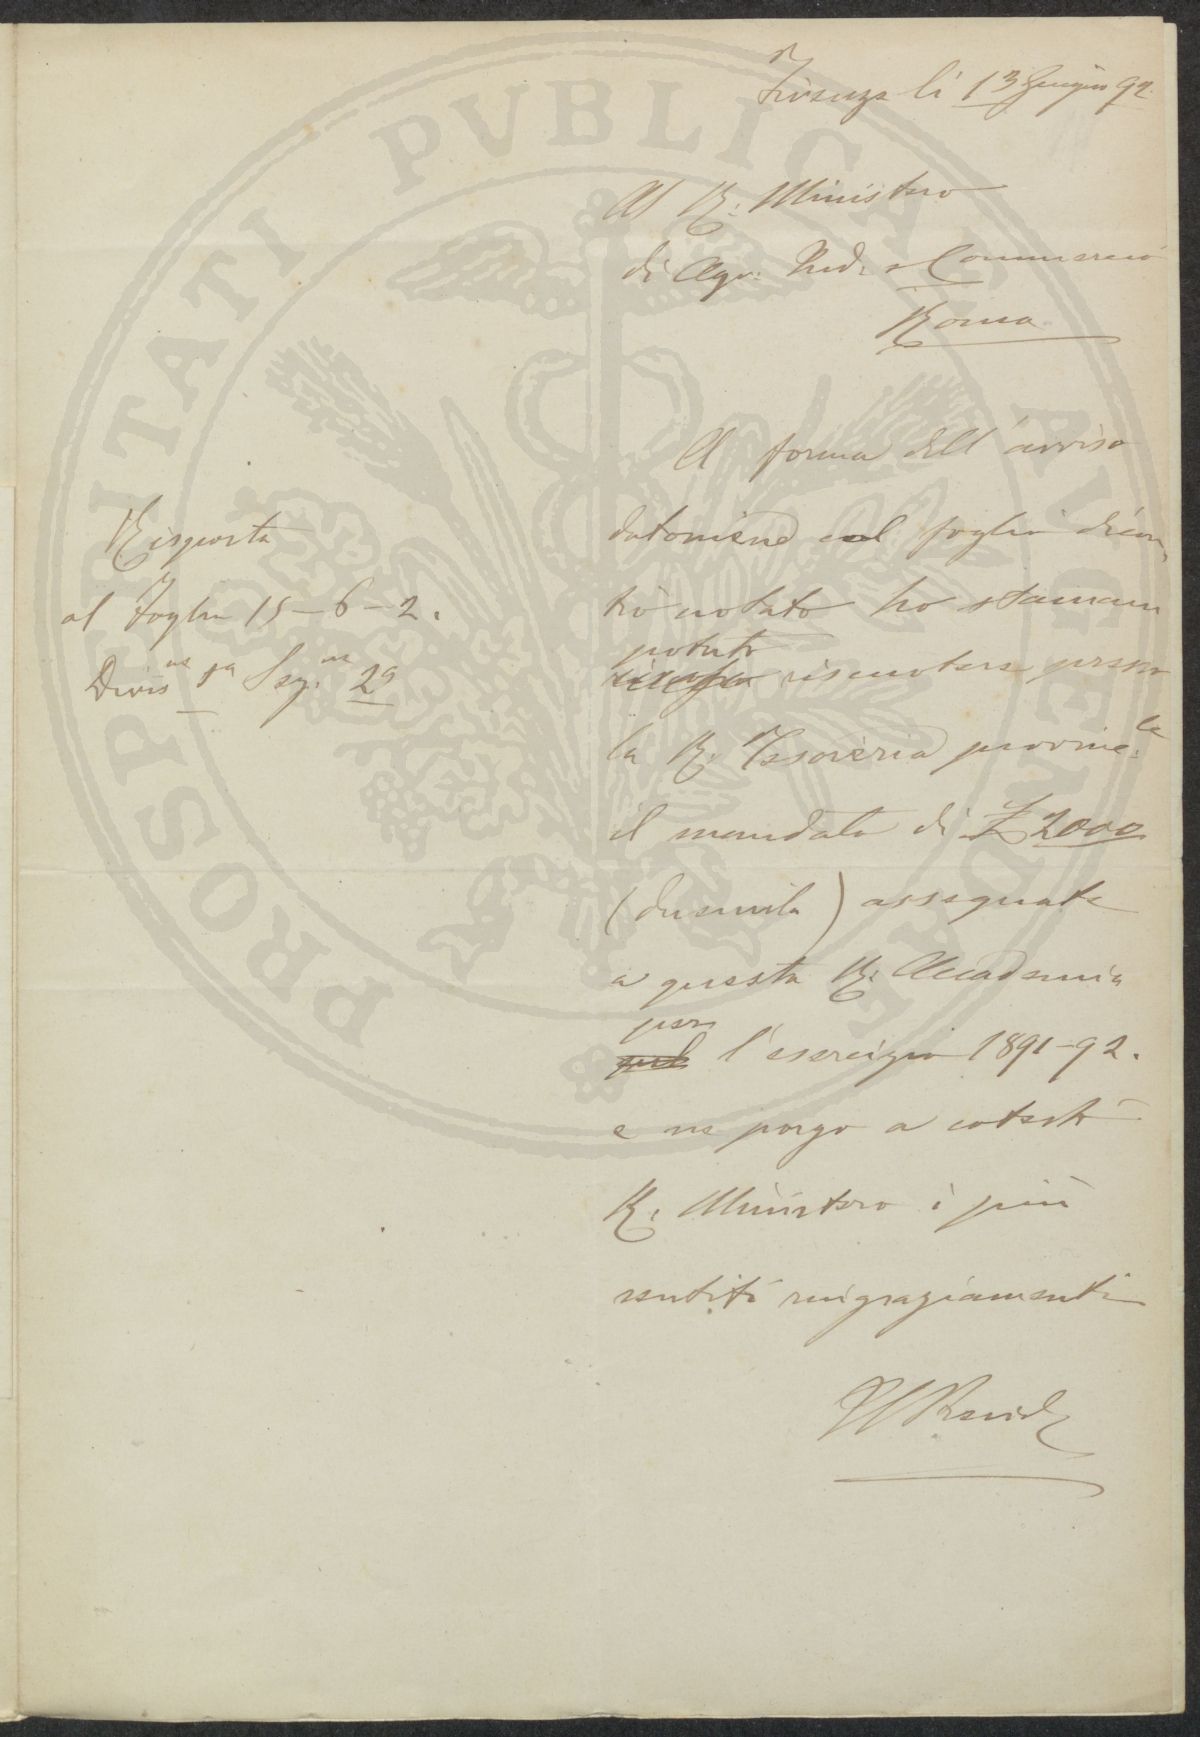 Firenze li 13 Giugno 92.
Al R. Ministero
di Agr. Ind. e Commercio
Roma
Risposta
al Foglio 15-6-2.
Divis.ne 1a Sez.ne 2a
A forma dell'avviso
datomene col foglio dicon,
tro notato ho stamani
potuto
riscuotere presso
la R. Tesoreria provinc.le
il mandato di £ 2000
(duemila) assegnate
a questa R. Accademia
per
pel l'esercizio 1891-92.
e ne porgo a cotesto
R. Ministero i più
sentiti ringraziamenti
PROSPERITATI PVBLICAE AVGENDAE